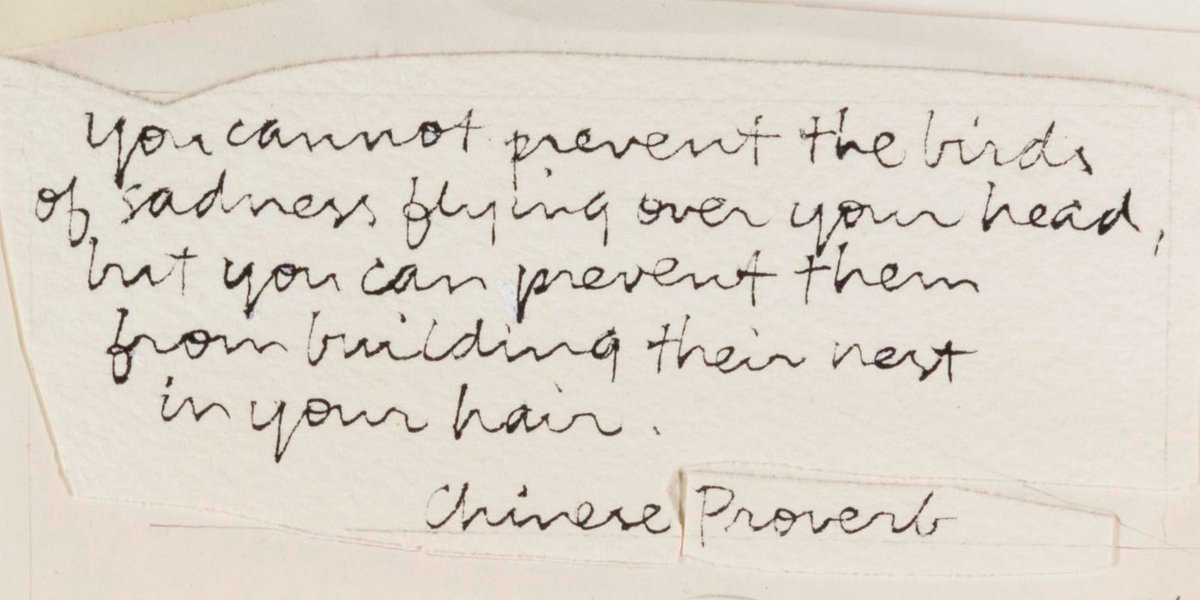 you cannot prevent the birds
of sadness flying over your head,
but you can prevent them
from building their nest
in your hair.
Chinese Proverb